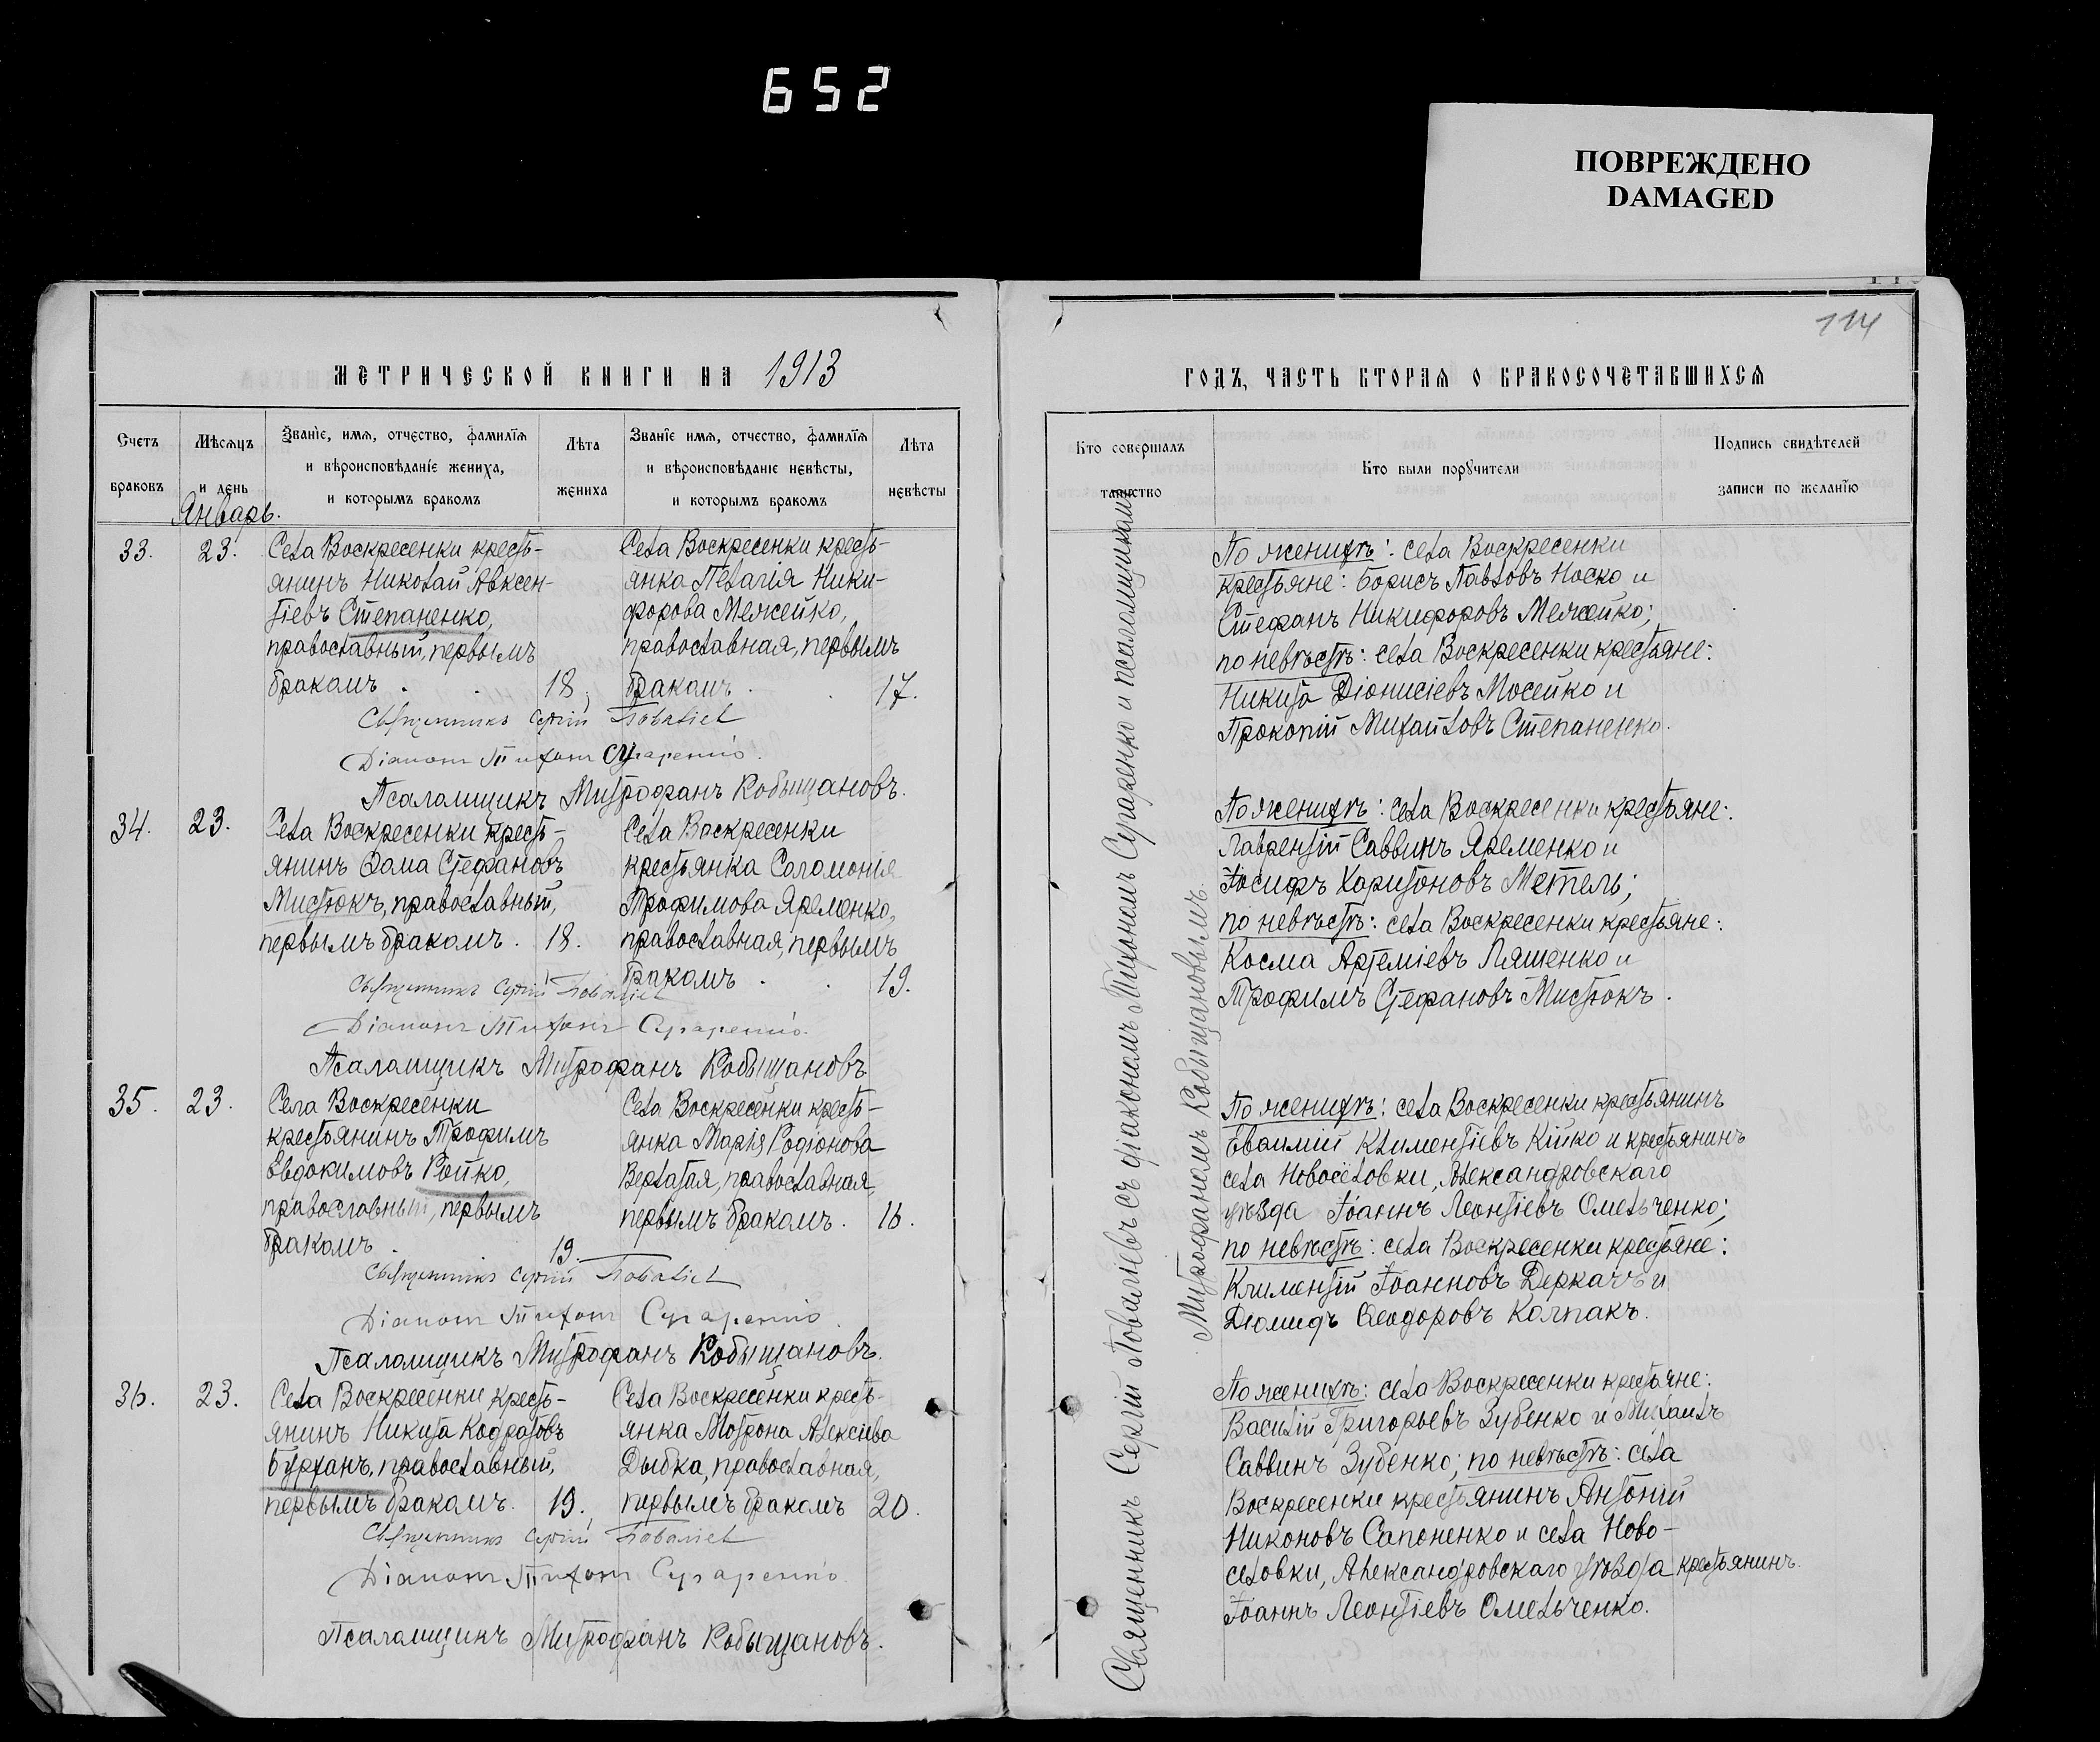 652
ПОВРЕЖДЕНО
DAMAGED
114
МЕТРИЧЕСКОЙ КНИГИ НА 1913
Счетъ браковъ
Мѣсяцъ и день
Званіе, имя, отчество, фамилія и вѣроисповѣданіе жениха, и которымъ бракомъ
Лѣта жениха
Званіе имя, отчество, фамилія и вѣроисповѣданіе невѣсты, и которымъ бракомъ
Лѣта невѣсты
Январь.
33.
23.
Села Воскресенки кресть-
янинъ Николай Авксен-
тіевъ Степаненко,
православный, первымъ
бракомъ . . 18.
Села Воскресенки кресть-
янка Пелагія Ники-
форова Межейко,
православная, первымъ
бракомъ . . 17.
Священникъ Сергій Поваліевъ
Діаконъ Тихонъ Сугаренко.
Псаломщикъ Митрофанъ Кобыщановъ.
34.
23.
Села Воскресенки кресть-
янинъ Ѳома Стефановъ
Мистюкъ, православный,
первымъ бракомъ. 18.
Села Воскресенки
крестьянка Саломонія
Трофимова Яременко,
православная, первымъ
бракомъ . . 19.
Священникъ Сергій Поваліевъ
Діаконъ Тихонъ Сугаренко.
Псаломщикъ Митрофанъ Кобыщановъ
35.
23.
Села Воскресенки
крестьянинъ Трофимъ
Евдокимовъ Ройко,
православный, первымъ
бракомъ . 19.
Села Воскресенки кресть-
янка Марія Родіонова
Верлатая, православная,
первымъ бракомъ. 16.
Священникъ Сергій Поваліевъ
Діаконъ Тихонъ Сугаренко.
Псаломщикъ Митрофанъ Кобыщановъ.
36.
23.
Села Воскресенки кресть-
янинъ Никита Кодратовъ
Бурханъ, православный,
первымъ бракомъ. 19.
Села Воскресенки кресть-
янка Мотрона Алексіева
Дыбка, православная,
первымъ бракомъ 20.
Священникъ Сергій Поваліевъ
Діаконъ Тихонъ Сугаренко.
Псаломщикъ Митрофанъ Кобыщановъ.
ГОДЪ, ЧАСТЬ ВТОРАЯ О БРАКОСОЧЕТАВШИХСЯ
Кто совершалъ таинство
Кто были поручители
Подпись свидѣтелей записи по желанію
Священникъ Сергій Поваліевъ съ діакономъ Тихономъ Сугаренко и псаломщикомъ
Митрофаномъ Кобыщановымъ.
По женихѣ: села Воскресенки
крестьяне: Борисъ Павловъ Носко и
Стефанъ Никифоровъ Межейко;
по невѣстѣ: села Воскресенки крестьяне:
Никита Діонисіевъ Мосейко и
Прокопій Михайловъ Степаненко.
По женихѣ: села Воскресенки крестьяне:
Лаврентій Саввинъ Яременко и
Іосифъ Харитоновъ Метель;
по невѣстѣ: села Воскресенки крестьяне:
Косма Артеміевъ Ляшенко и
Трофимъ Стефановъ Мистюкъ.
По женихѣ: села Воскресенки крестьянинъ
Евѳимій Климентіевъ Кійко и крестьянинъ
села Новосёловки, Александровскаго
уѣзда Іоаннъ Леонтіевъ Омельченко;
по невѣстѣ: села Воскресенки крестьяне:
Климентій Іоанновъ Деркачъ и
Діомидъ Ѳеодоровъ Колпакъ.
По женихѣ: села Воскресенки крестьяне:
Василій Григорьевъ Зубенко и Михаилъ
Саввинъ Зубенко; по невѣстѣ: села
Воскресенки крестьянинъ Антоній
Никоновъ Сапоненко и села Ново-
селовки, Александровскаго уѣзда крестьянинъ
Іоаннъ Леонтіевъ Омельченко.